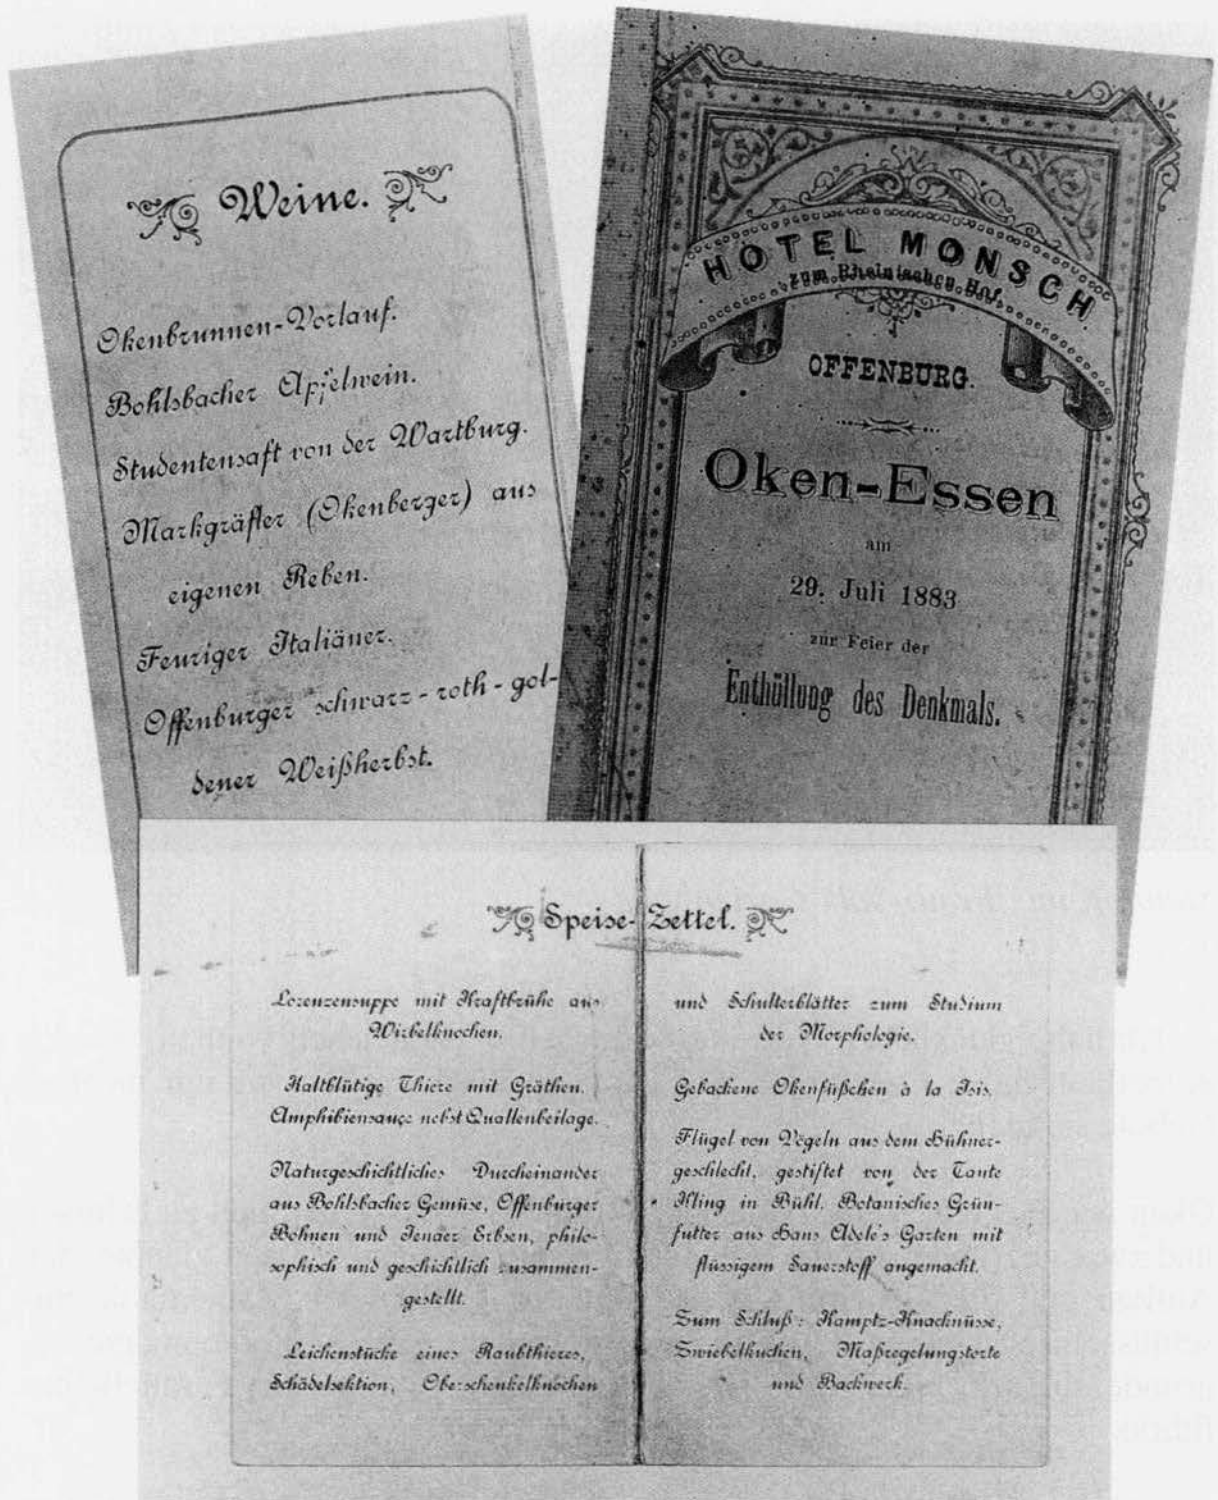 Weine.
Okenbrunnen-Vorlauf.
Bohlsbacher Apfelwein.
Studentensaft von der Wartburg.
Markgräfler (Okenberger) aus
eigenen Reben.
Feuriger Italiäner.
Offenburger schwarz-roth-gol-
dener Weißherbst.
HOTEL MONSCH
zum Rheinischen Hof.
OFFENBURG.
Oken-Essen
am
29. Juli 1883
zur Feier der
Enthüllung des Denkmals.
Speise-Zettel.
Lorenzensuppe mit Kraftbrühe aus
Wirbelknochen.
Kaltblütige Thiere mit Gräthen.
Amphibiensauçe nebst Quallenbeilage.
Naturgeschichtliches Durcheinander
aus Bohlsbacher Gemüse, Offenburger
Bohnen und Jenaer Erbsen, philo-
sophisch und geschichtlich zusammen-
gestellt.
Leichenstücke eines Raubthieres,
Schädelsektion, Oberschenkelknochen
und Schulterblätter zum Studium
der Morphologie.
Gebackene Okenfüßchen à la Isis.
Flügel von Vögeln aus dem Hühner-
geschlecht, gestiftet von der Tante
Kling in Bühl. Botanisches Grün-
futter aus Hans Adele's Garten mit
flüssigem Sauerstoff angemacht.
Zum Schluß: Kamptz-Knacknüsse,
Zwiebelkuchen, Maßregelungstorte
und Backwerk.